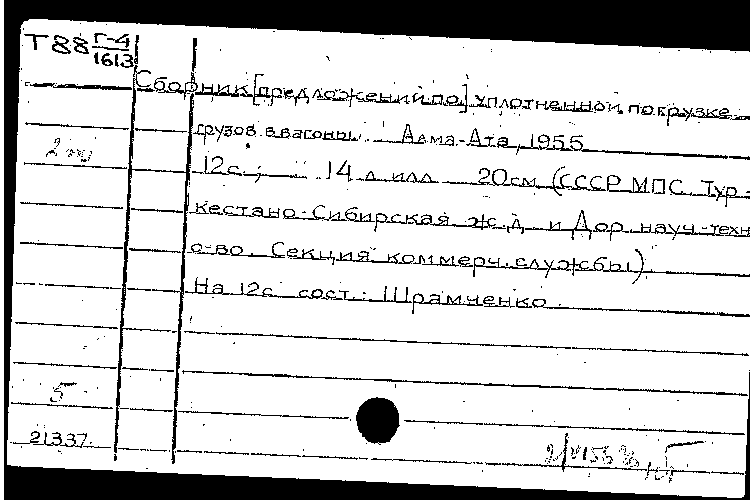 Т88 Г-4
1613
Сборник [предложений по] уплотненной погрузке
грузов в вагоны. Алма-Ата, 1955
12с.; 14 л илл 20см (СССР МПС. Тур-
кестано-Сибирская ж.д. и Дор. науч.-техн
о-во. Секция коммерч. службы)
На 12с сост.: Шрамченко.
5
21337